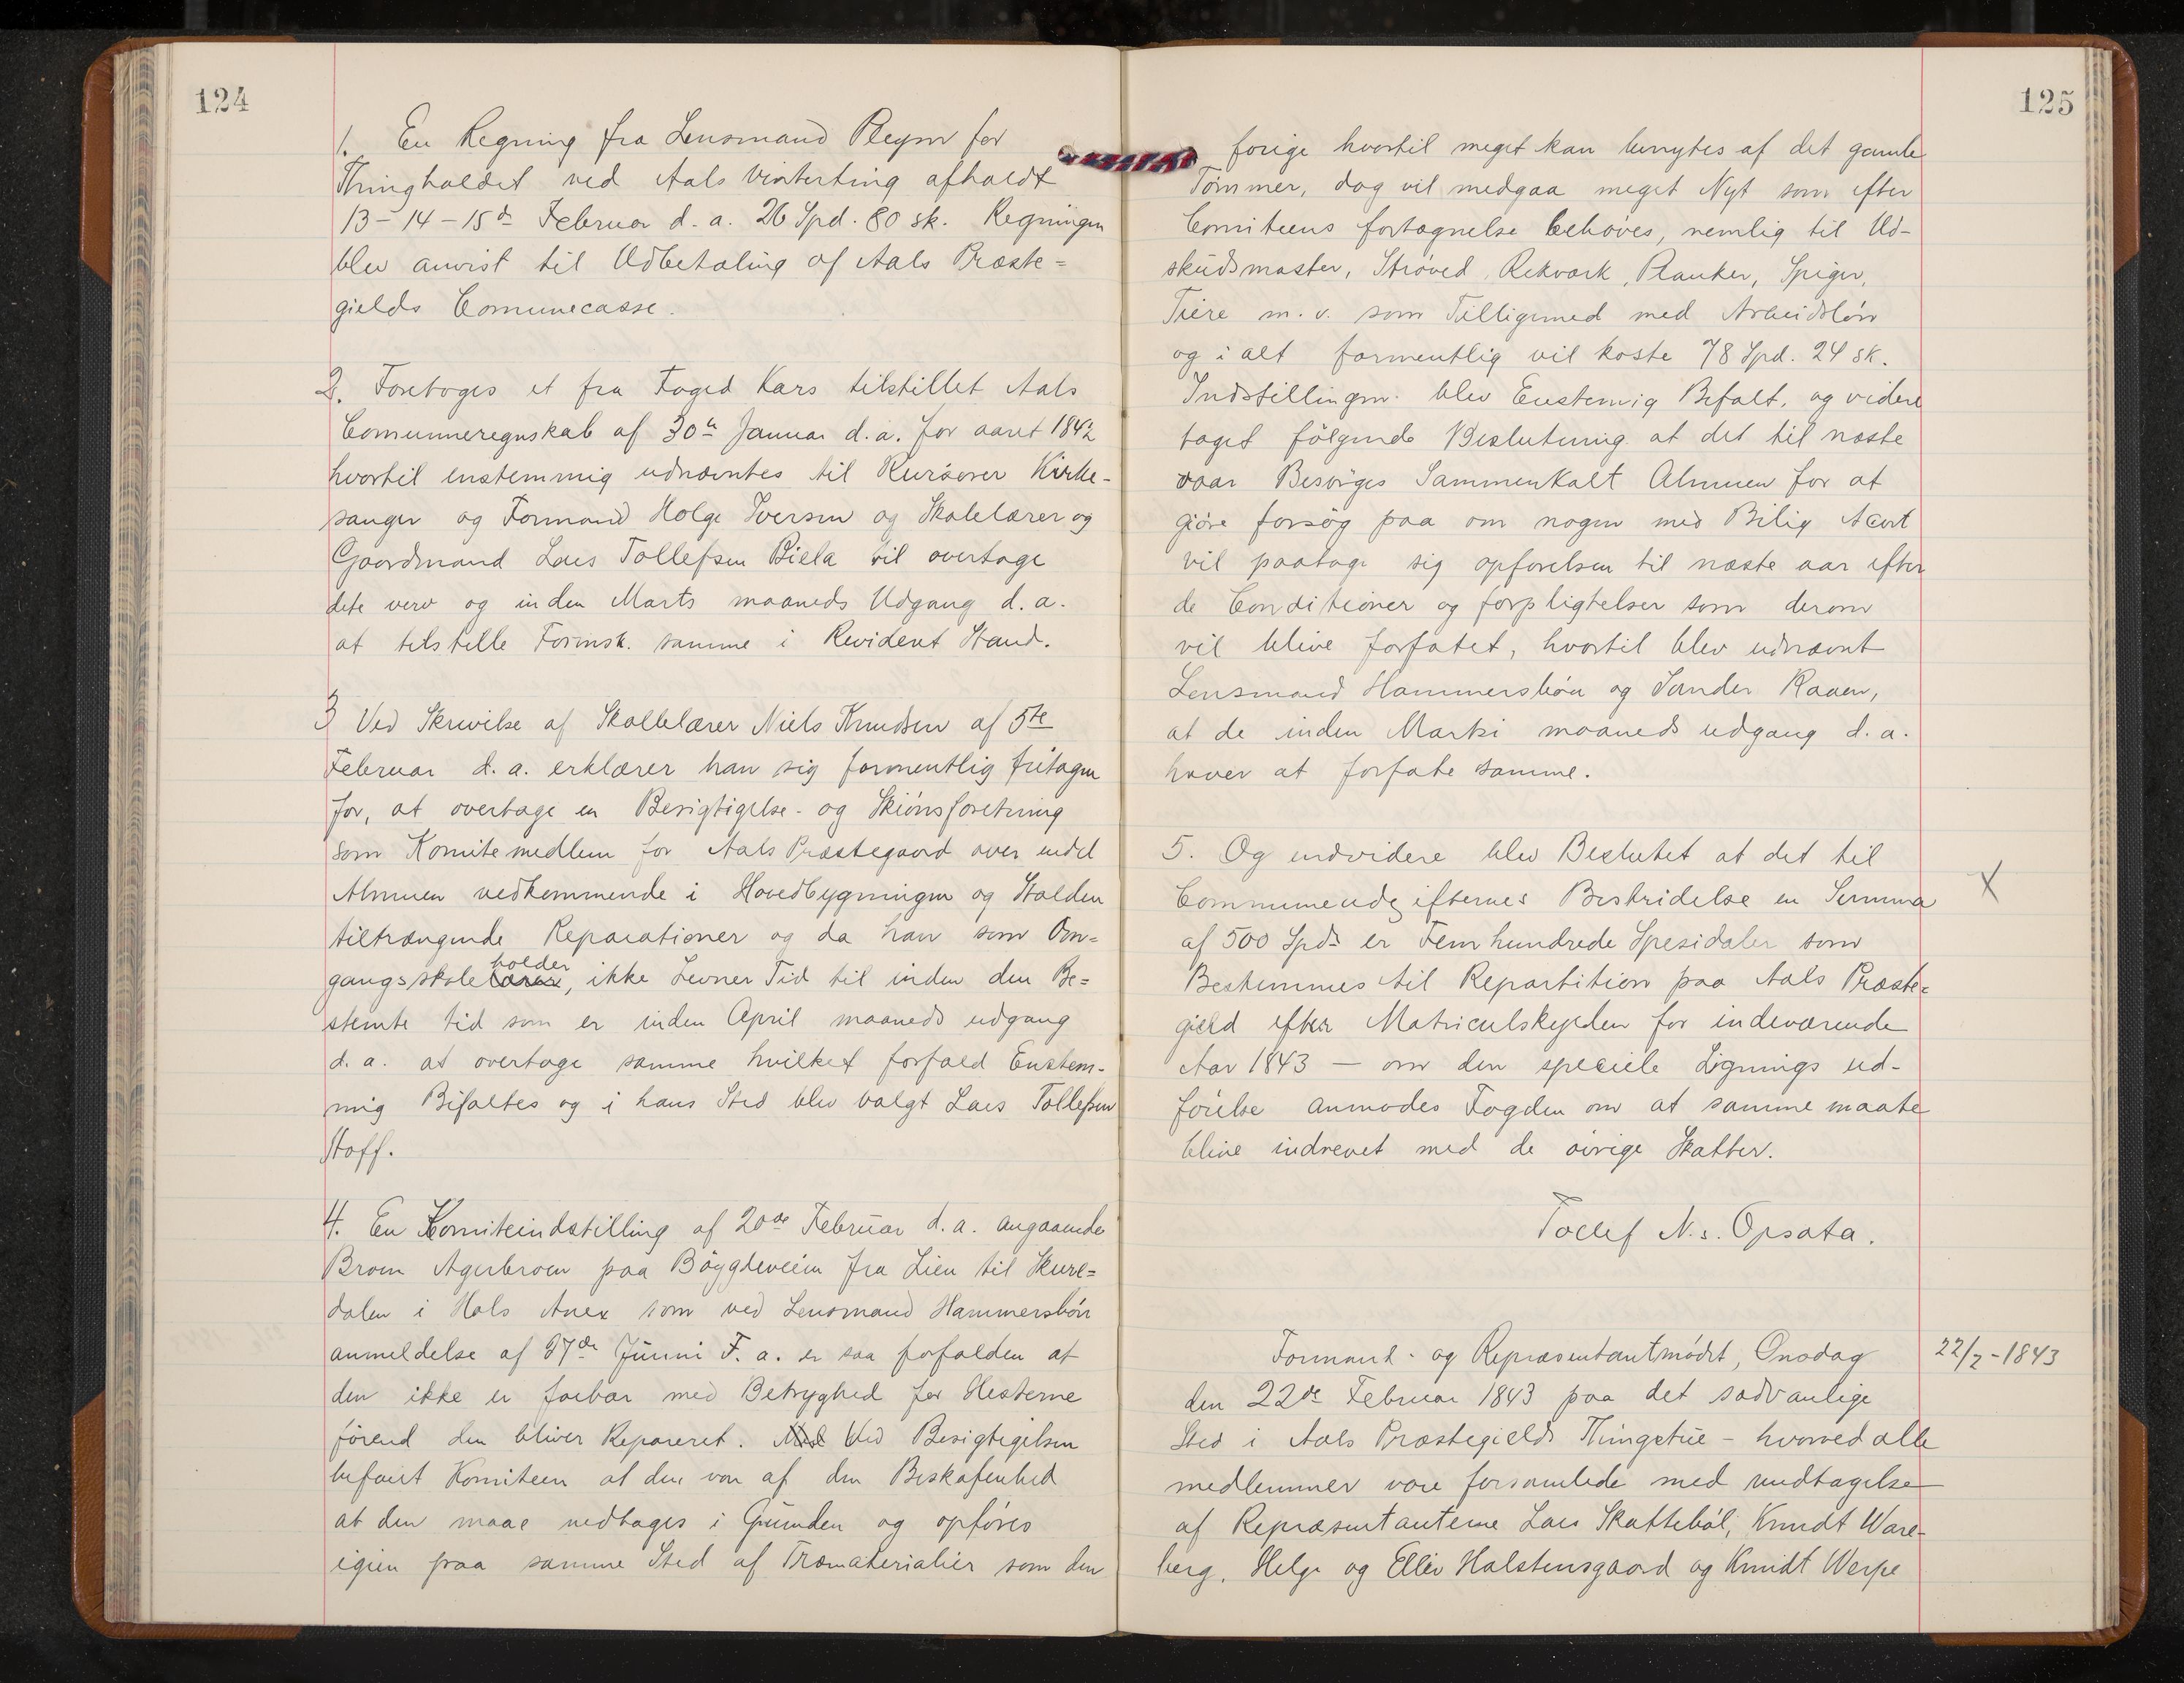 124
1. En Regning fra Lensmand Pleym for
Thingholdet ved Aals Vinterting afholdt
13-14-15de Februar d. a. 26 Spd. 80 sk. Regningen
blev anvist til Udbetaling af Aals Præste=
gields Comunecasse.
2. Foretoges et fra Foged Kars tilstillet Aals
Comunneregnskab af 30te Januar d. a. for aaret 1842
hvortil enstemmig udnævntes til Revisorer Kirke-
sanger og Formand Holge Iversen og Skolelærer og
Gaardmand Lars Tollefsen Biela vil overtage
dete verv og inden Marts maaneds Udgang d. a.
at tilstille Formsk. samme i Revideret Stand.
3 Ved Skrivelse af Skollelærer Niels Knudsen af 5te
Februar d. a. erklærer han sig formentlig fritagen
for, at overtage en Besigtigelse- og Skiönsforetning
som Komitemedlem for Aals Præstegaard over endel
Almuen vedkommende i Hovedbygningen og Stalden
tiltrængende Reparationer og da han som Om=
gangsskoleholder, ikke Levner Tid til inden den Be=
stemte tid som er inden April maaneds udgang
d. a. at overtage samme hvilket forfald Enstem-
mig Bifaltes og i hans Sted blev valgt Lars Tollefsen
Hoff.
4. En Komiteindstilling af 20de Februar d. a. angaaende
Broen Agerbroen paa Böygdeveien fra Lien til Skure=
dalen i Hols Anex som ved Lensmand Hammersbön
anmeldelse af 27de Junni F. a. er saa forfalden at
den ikke er farbar med Betryghed for Hesterne
förend den bliver Reparert. Ved Besigtigelsen
befant Komiteen at den var af den Beskafenhed
at den maae nedtages i Grunden og opföres
igien paa samme Sted af Træmaterialier som den
125
forige hvortil meget kan benytes af det gamle
Tömmer, dog vil medgaa meget Nyt som efter
Comiteens fortagnelse behöves, nemlig til Ud-
skudsmaster, Ströved, Rekværk, Planker, Spiger,
Tiere m. v. som Tilligemed med Arbeidslön
og i alt formentlig vil koste 78 Spd. 24 sk.
Indstillingen blev Enstemig Bifalt, og videre
taget fölgende Beslutning at det til næste
vaar Besörges Sammenkalt Almuen for at
giöre forsög paa om nogen med Bilig Acort
vil paatage sig opförelsen til næste aar efter
de Conditioner og forpligtelser som derom
vil blive forfatet, hvortil blev udnævnt
Lensmand Hammersbön og Sander Raaen,
at de inden Martsi maaneds udgang d. a.
haver at forfate samme.
5. Og endvidere blev Beslutet at det til
Communeudgifternes Bestridelse en Summa
af 500 Spd. er Fem hundrede Spesidaler som
Bestemmes til Repartition paa Aals Præste=
gield efter Matriculskylden for indeværende
Aar 1843 — om den speciele Lignings ud-
förelse anmodes Fogden om at samme maate
blive indrevet med de övrige Skatter.
X
Tollef N.s. Opsata.
Formand- og Repræsentantmödet, Onsdag
22/2-1843
den 22de Februar 1843 paa det sædvanlige
Sted i Aals Præstegields Thingstue - hvorved alle
medlemmer vare forsamlede med undtagelse
af Repræsentanterne Lars Skatteböl, Knudt Ware-
berg, Helge og Ellev Halstensgaard og Knudt Werpe